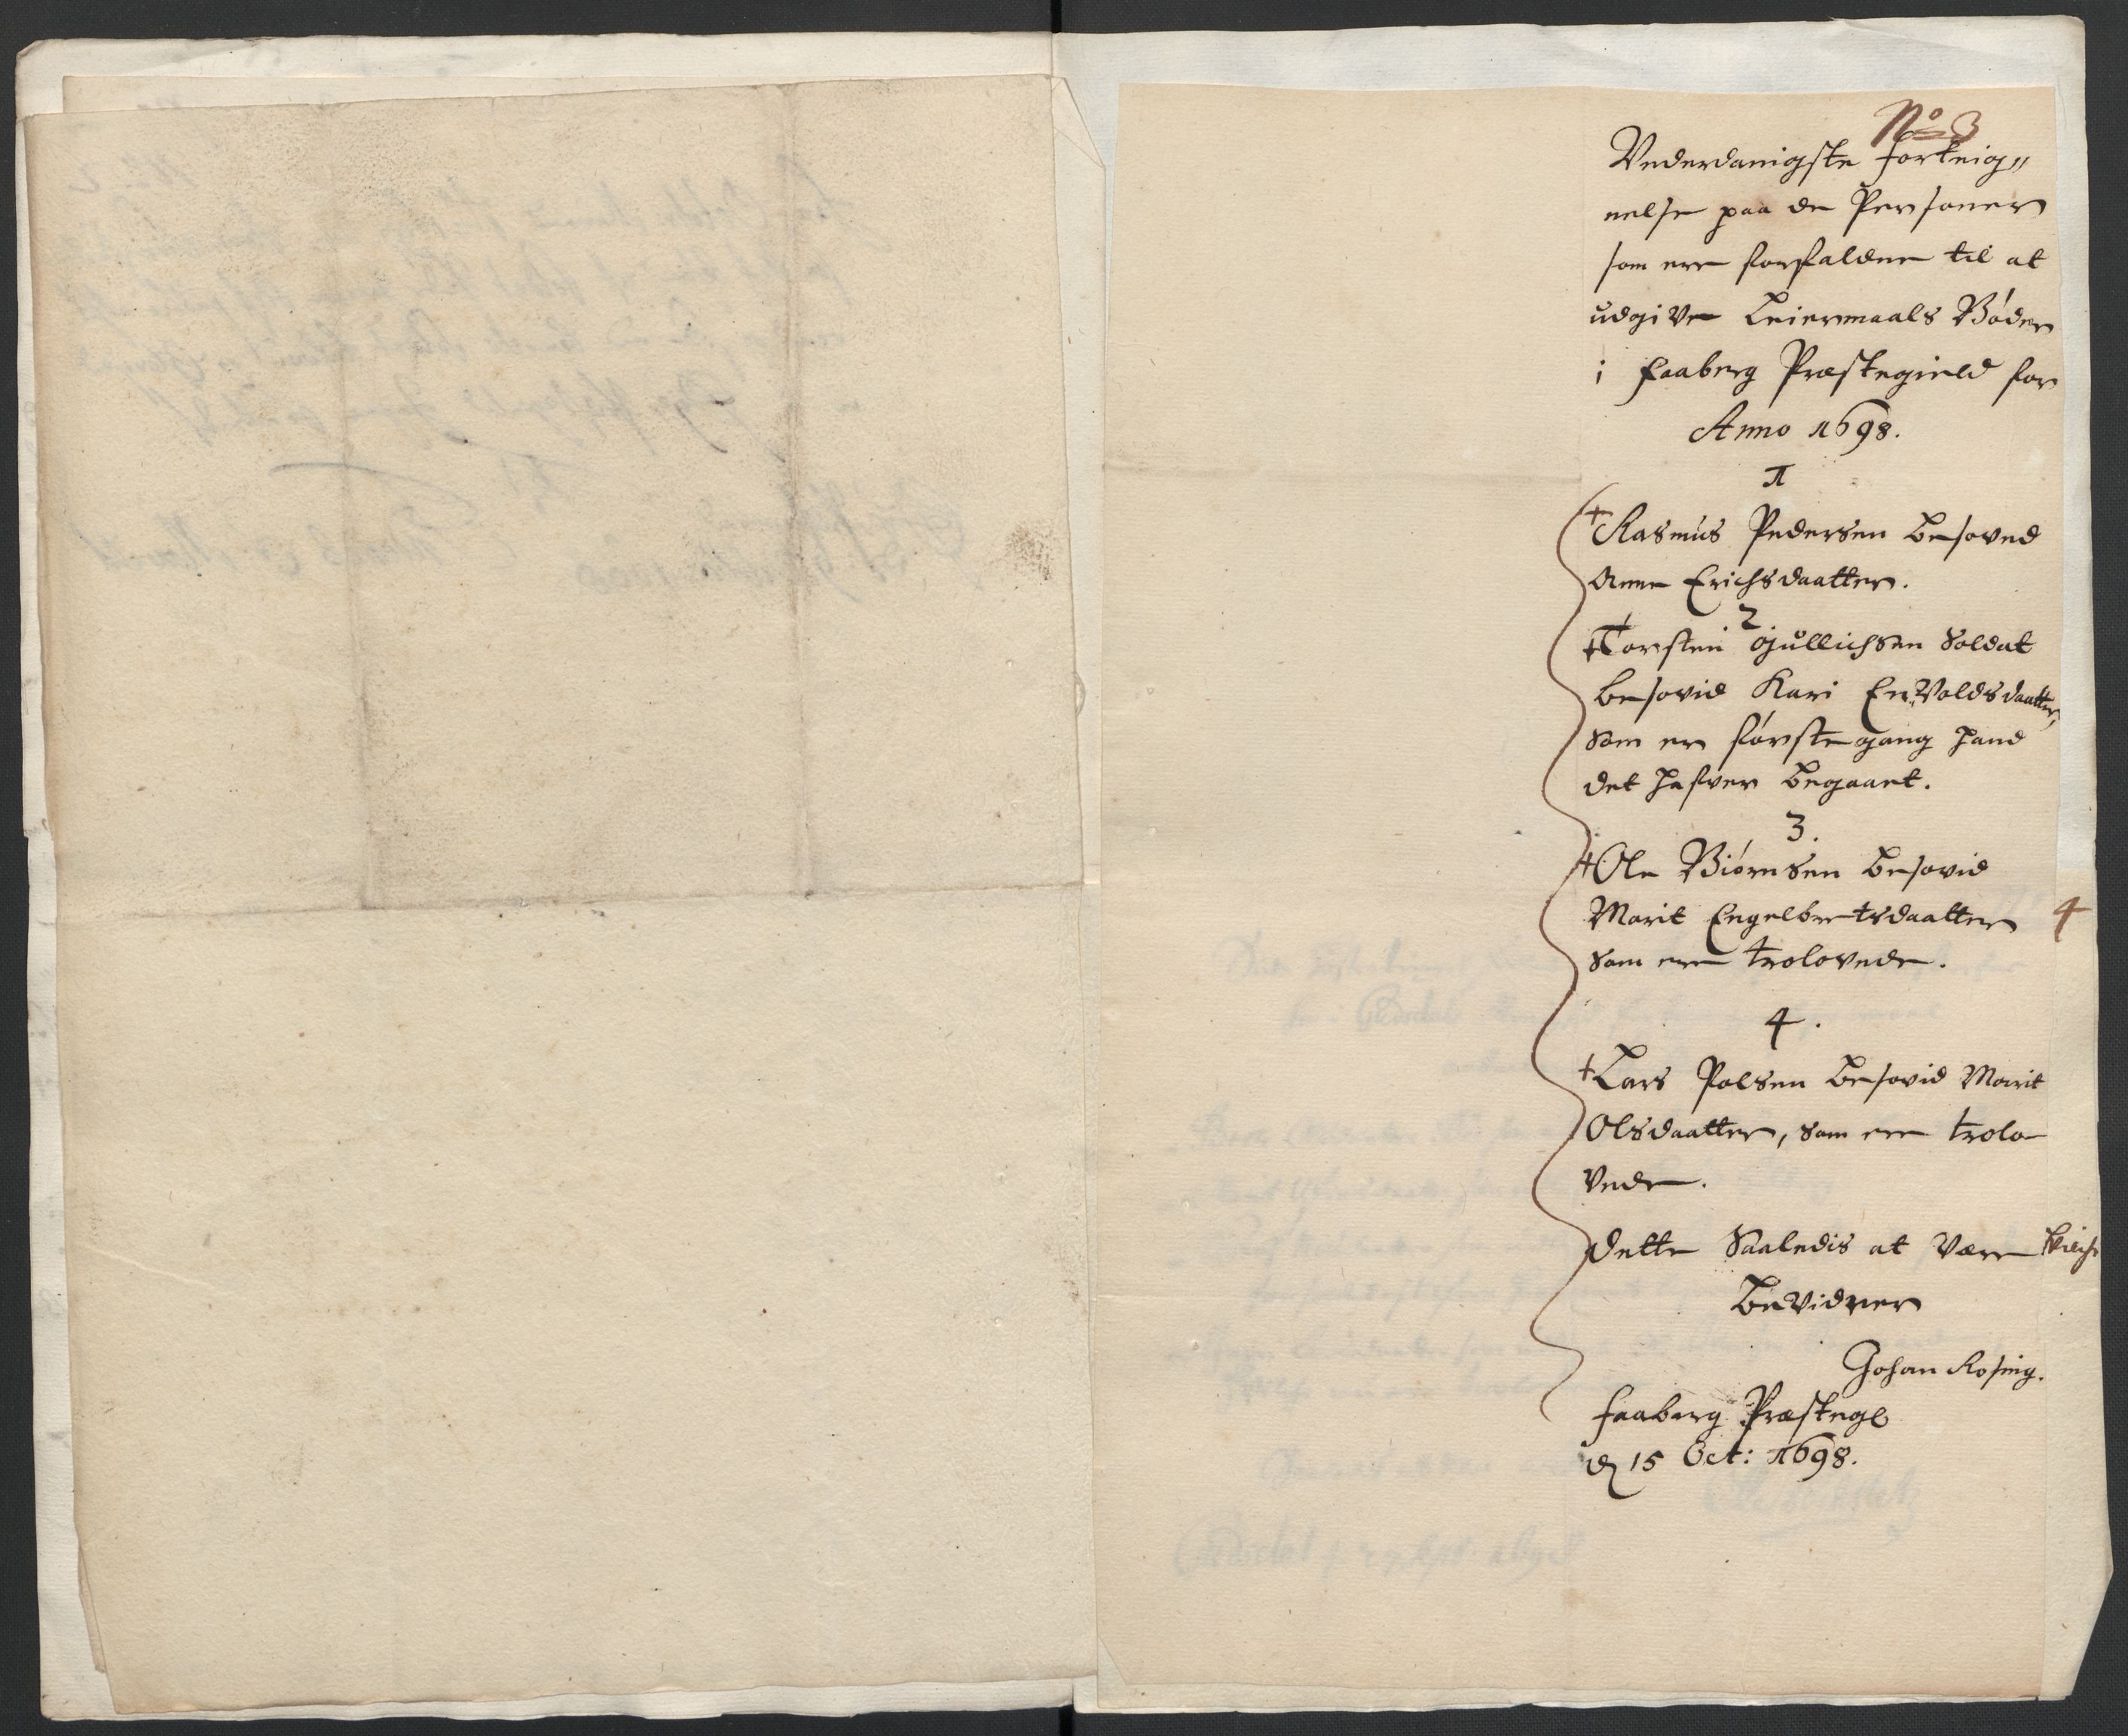 No 3
Vederdanigste Forteig„
nelse paa de Personer
som ere forfaldene til at
udgive Leiermaals Bøder
i Faaberg Præstegield for
Anno 1698.
1
+ Rasmus Pedersen besoved
Anne Erichsdaatter.
2
+ Torsten Gullichsen Soldat
besovid Kari Envoldsdaatter,
Som er første gang hand
det hafver begaaet.
3.
+ Ole Biørnsen besovid
Marit Engelbretsdaatter 4
Som ere trolovede.
4.
+ Lars Polsen besovid Marit
Olsdaatter, Som ere trolo
vede.
Dette Saaledis at være
bevidner
Johan Rosing.
Faaberg Præstegl
d 15 Oct: 1698.